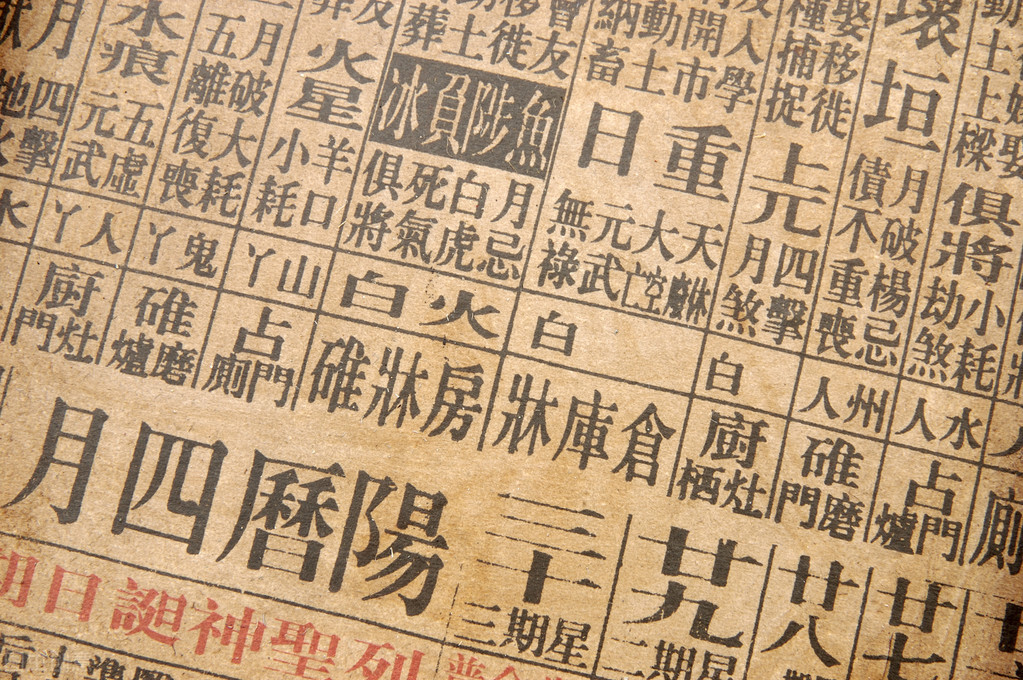 俱將
小耗
劫煞
水人
占門爐
壞垣
月破楊忌
債不重喪
州人
碓磨門
娶移徙
種捕捉
上元
四擊
月煞
白
廚灶栖
人學
開市
動土
納畜
重日
大空亡
元武
無祿
白
倉庫牀
會友
移徙
土
葬
魚陟負冰
月忌
白虎
死氣
俱將
火白
房牀碓
火星
羊口
小耗
山丫
占門廁
月破大耗
五離復喪
鬼丫
碓磨爐
水痕
五虛
元武
人丫
廚灶門
月
四擊
廿七
廿八
廿九
星期二
三十
星期三
陽曆四月
列聖神誕日期